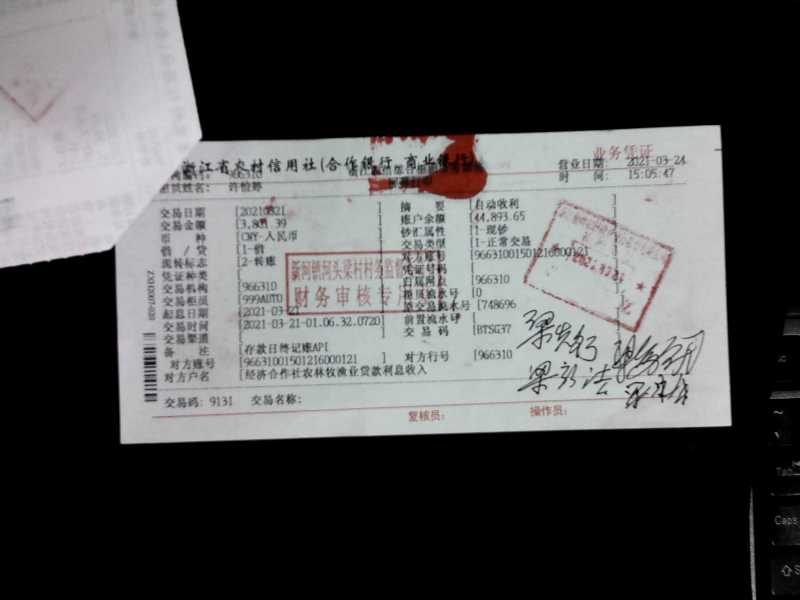 业务凭证
浙江省农村信用社(合作银行 商业银行)
966310
营业日期: 2021-03-24
柜员姓名: 许怡婷
时 间: 15:05:47
交易日期 [20210321
摘 要 [自动收利
交易金额 [3,801.39
账户余额 [44,893.65
币 种 [CNY-人民币
钞汇属性 [1-现钞
借 / 贷 [1-借
交易类型 [1-正常交易
现转标志 [2-转账
对方账号 [96631001501216000121
凭证种类 [
凭证号码 [
交易机构 [966310
归属网点 [966310
交易柜员 [999AUTO
柜员流水号 [0
起息日期 [2021-03-21
原交易流水号 [748696
交易时间 [2021-03-21-01.06.32.0720]
前置流水号 [
交易渠道
交 易 码 [BTSG37
备 注 [存款日终记账API
对方账号 [96631001501216000121 ]
对方行号 [966310
对方户名 [经济合作社农林牧渔业贷款利息收入
交易码: 9131 交易名称:
复核员: 操作员:
新河镇河头梁村村务监
财务审核专用
Tab
Caps